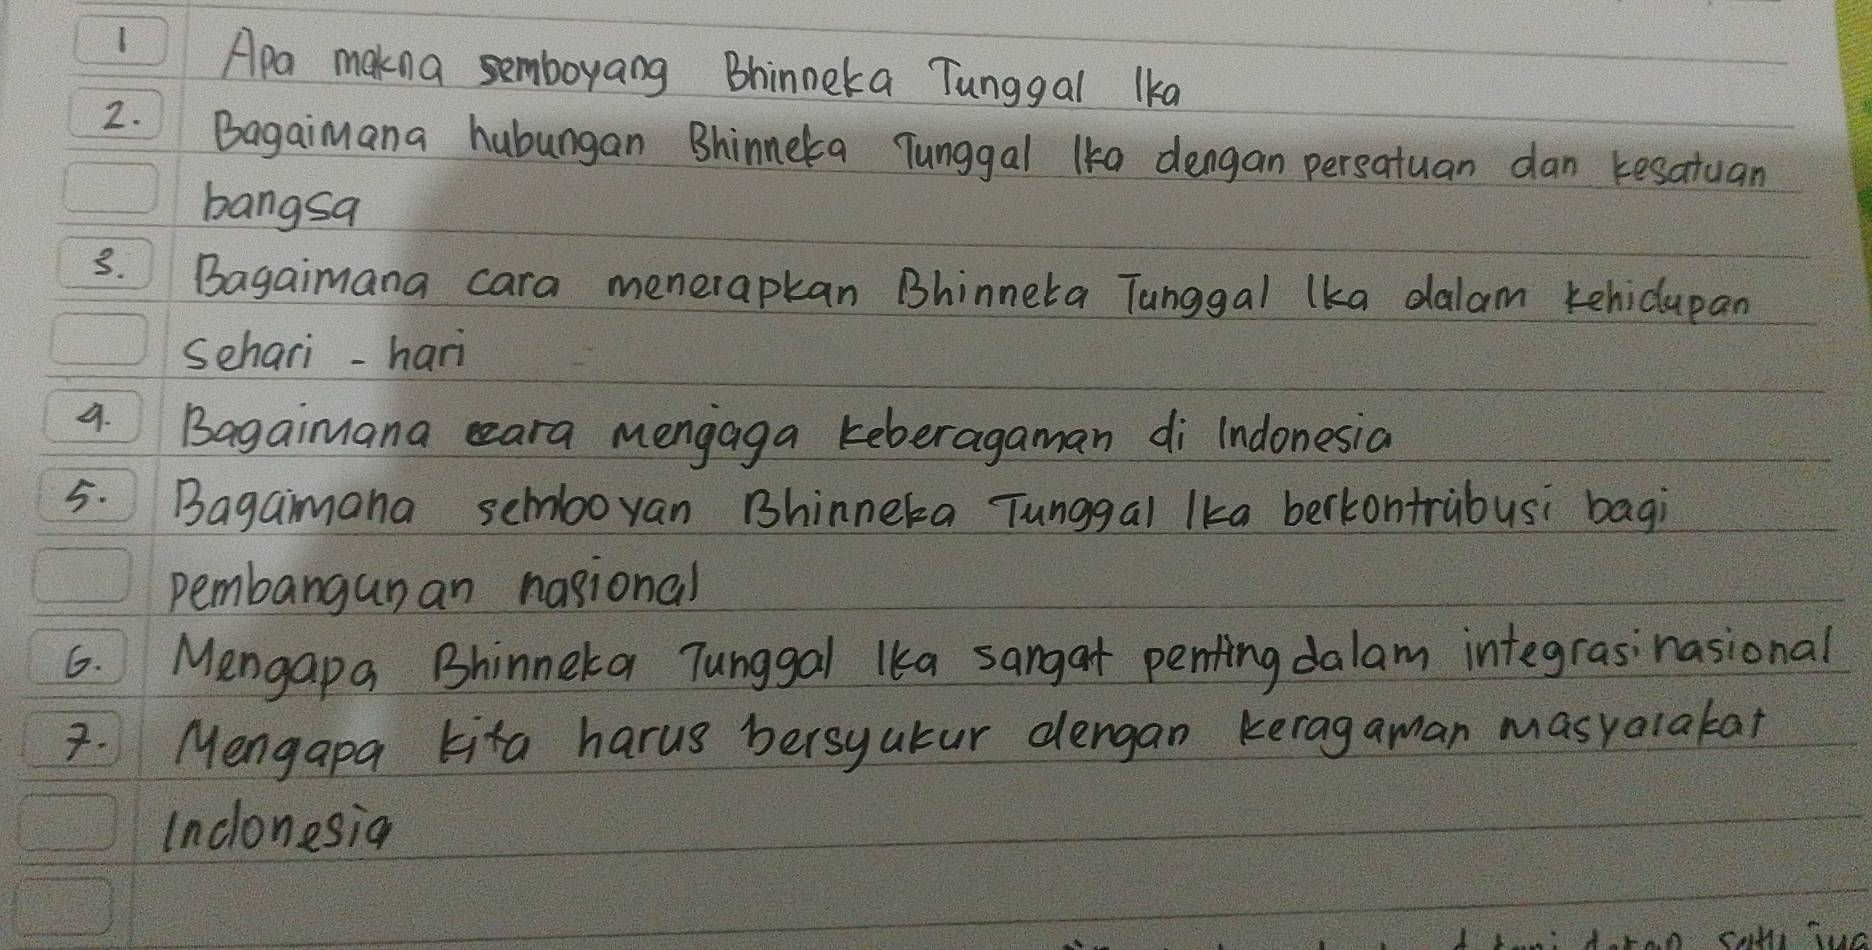 1 Apa makna semboyang Bhinneka Tunggal Ika
2. Bagaimana hubungan Bhinneka Tunggal Ika dengan persatuan dan kesatuan
bangsa
3. Bagaimana cara menerapkan Bhinneka Tunggal Ika dalam kehidupan
sehari - hari
4. Bagaimana cara mengaga keberagaman di Indonesia
5. Bagaimana semboyan Bhinneka Tunggal Ika berkontribusi bagi
pembangunan nasional
6. Mengapa Bhinneka Tunggal Ika sangat penting dalam integrasi nasional
7. Mengapa kita harus bersyukur dengan keragaman masyarakat
Indonesia